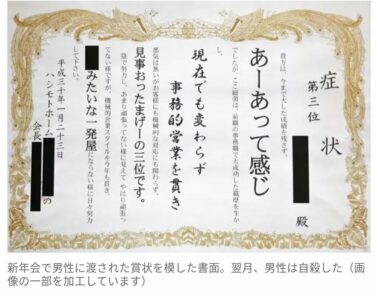 症状
第三位
殿
貴方は、今まで大した成績を残さず、
あーあって感じ
でしたが、ここ 前職の事務職で大成功した職歴を生か
現在でも変わらず
事務的営業を貫き
悪気は無いがお客様にも機械的な対応にも関わらず、
見事おったまげーの三位です。
陰で努力し、あまり頑張ってない様に見えて、やはり頑張っ
てない様ですが、機械的営業スタイルを今年も貫き、
みたいな一発屋にならない様に日々努力
して下さい。
平成三十年一月二十三日
ハシモトホーム
会長
の
新年会で男性に渡された賞状を模した書面。翌月、男性は自殺した（画
像の一部を加工しています）